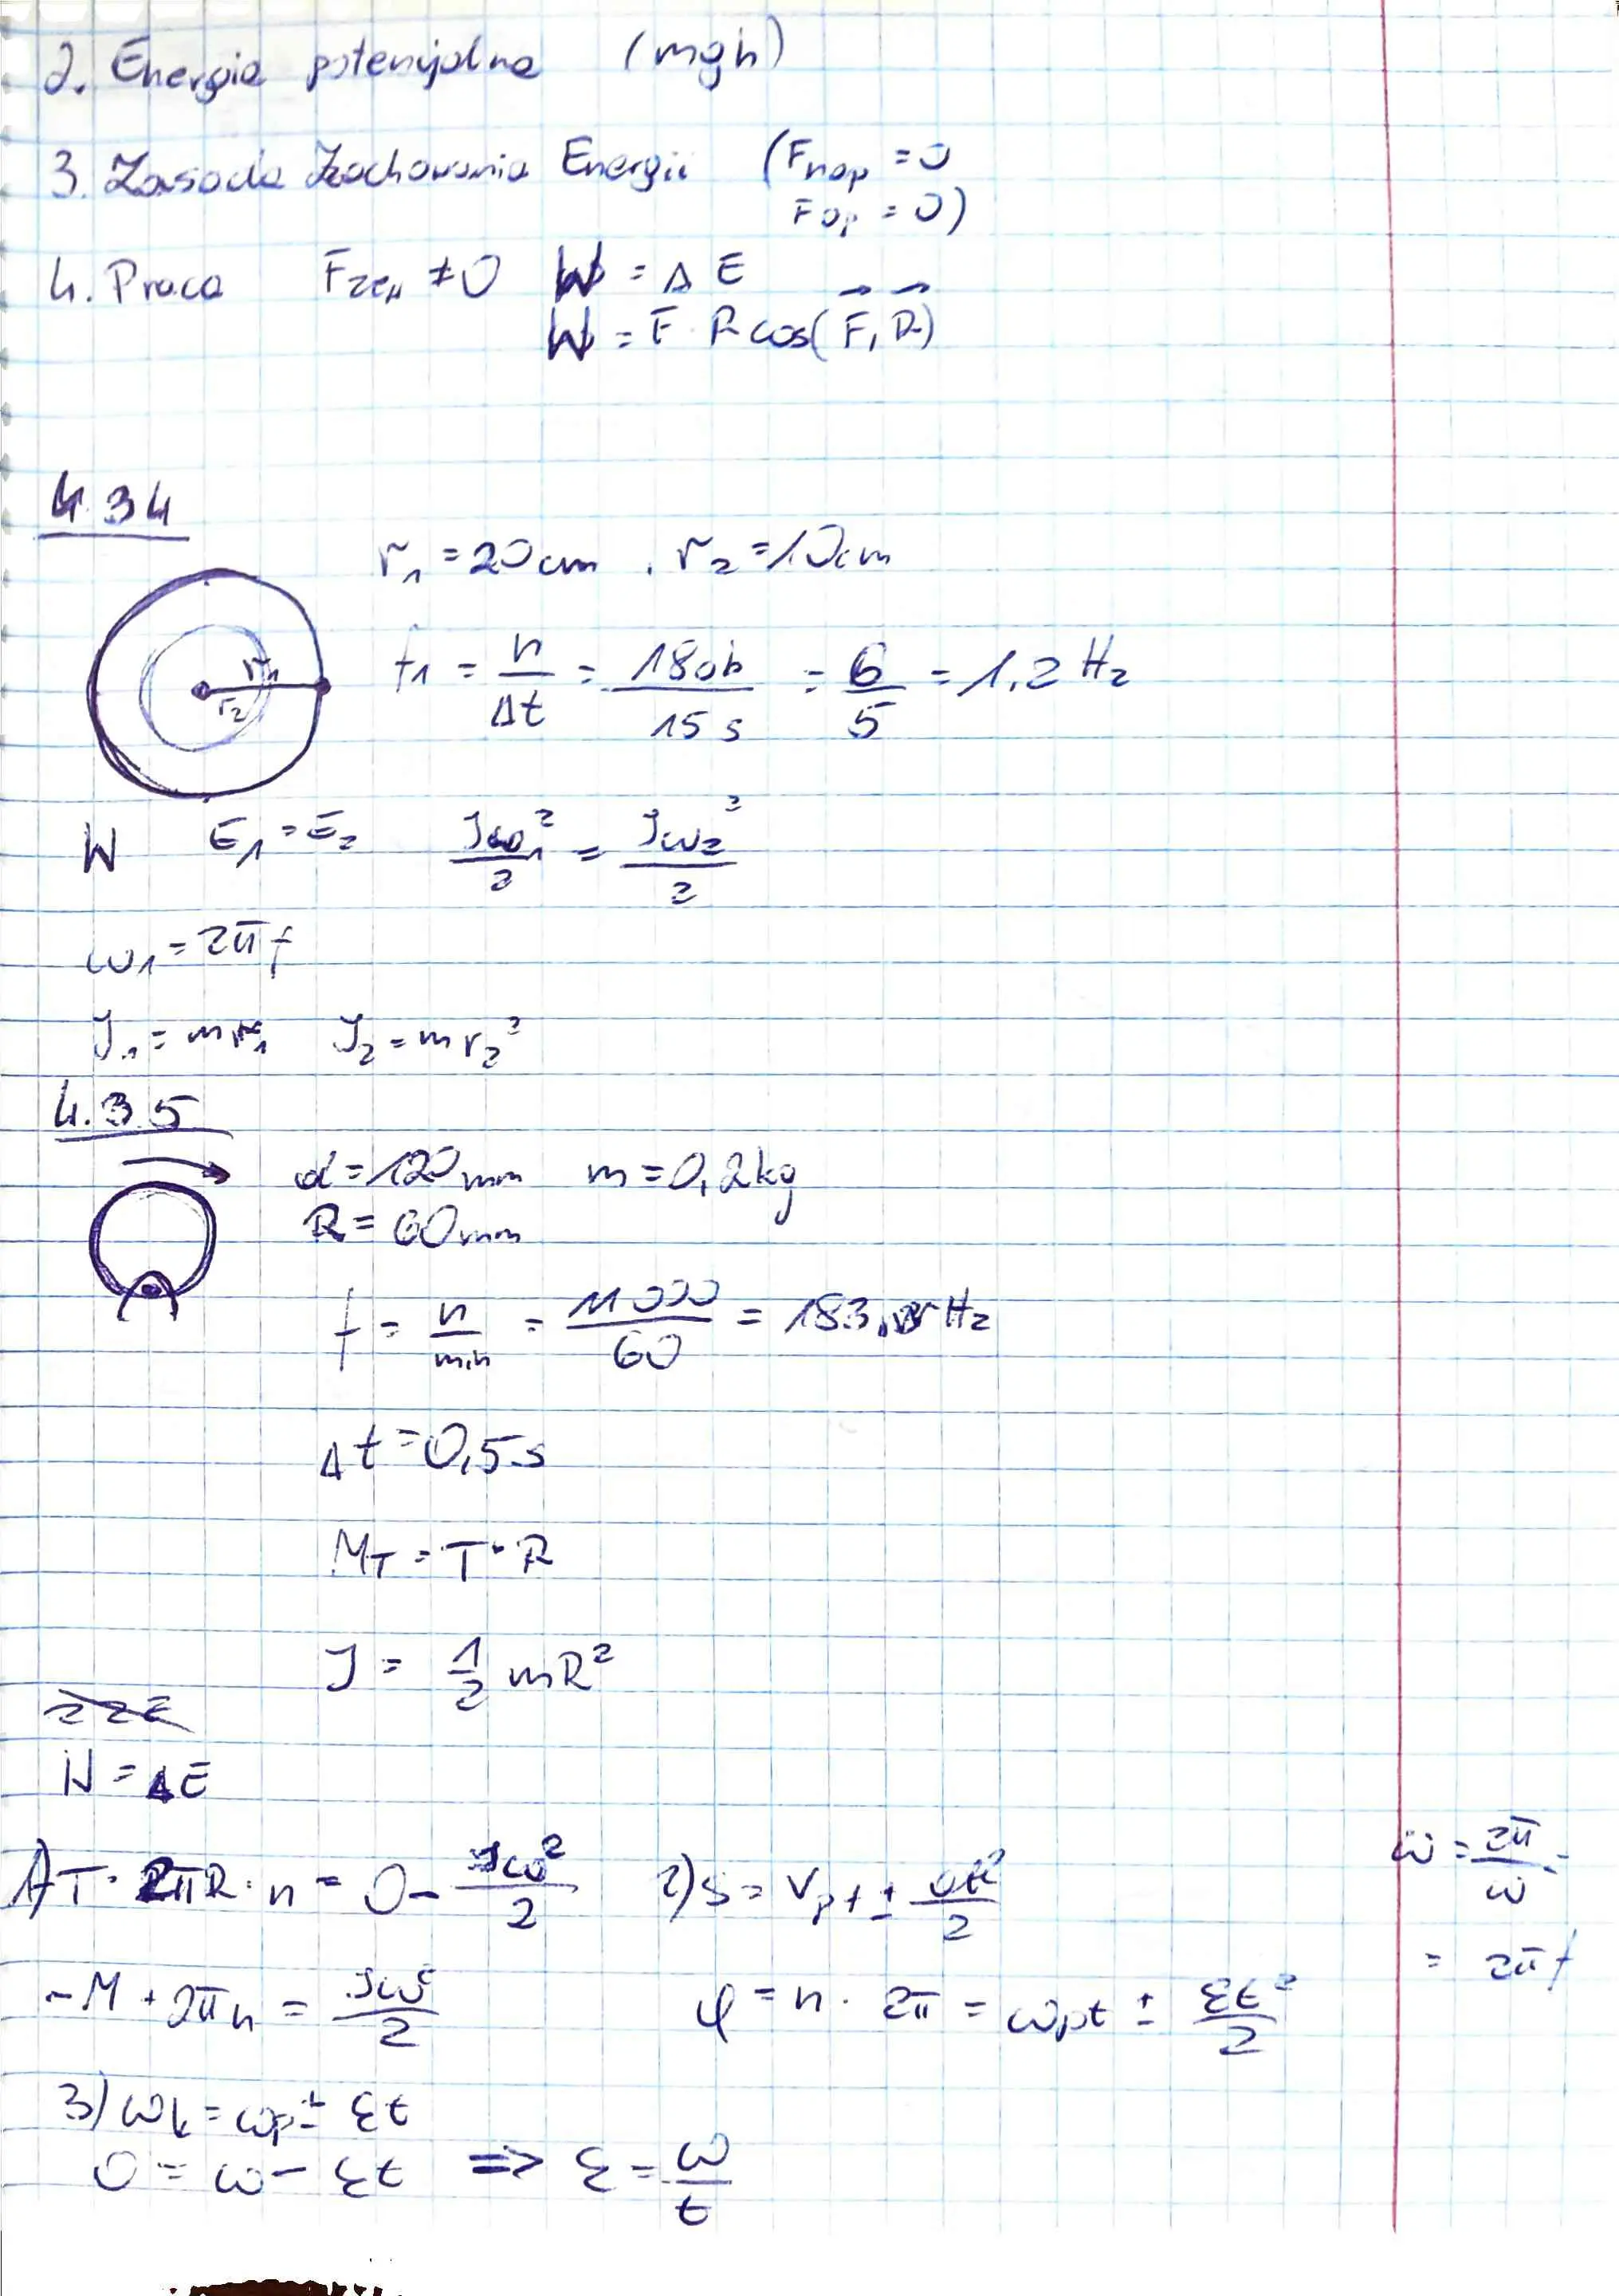 2. Energia potencjalna (mgh)
3. Zasada Zachowania Energii (Fnap = 0
Fop = 0)
4. Praca Fzew ≠ 0 W = Δ E
W = F · R cos(F, R)
4.34
r₁ = 20cm , r₂ = 10cm
f₁ = n/Δt = 18ob/15 s = 6/5 = 1,2 Hz
r₁
r₂
W E₁ = E₂ Jω₁²/2 = Jω₂²/2
ω₁ = 2πf
J₁ = mr₁ J₂ = mr₂²
4.35
d = 120mm m = 0,2kg
R = 60mm
f = n/min = 11000/60 = 183, Hz
Δt = 0,5s
M_T = T · R
J = 1/2 mR²
W = ΔE
1) T · 2πR · n = 0 - Jω²/2 2) s = Vpt ± at²/2 ω = 2π/ω
-M · 2πn = Jω²/2 φ = n · 2π = ωpt ± εt²/2 = 2πf
3) ωk = ωp ± εt
0 = ω - εt => ε = ω/t